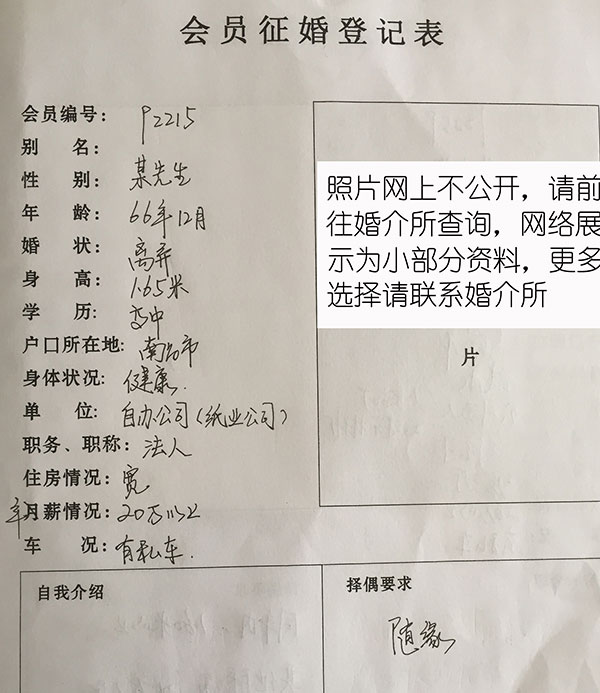 会员征婚登记表
会员编号: P2215
别 名:
性 别: 某先生
年 龄: 66年12月
婚 状: 离异
身 高: 1.65米
学 历: 高中
户口所在地: 南昌市
身体状况: 健康.
单 位: 自办公司(纸业公司)
职务、职称: 法人
住房情况: 宽
年月薪情况: 20万以上
车 况: 有私车.
照片网上不公开,请前
往婚介所查询,网络展
示为小部分资料,更多
选择请联系婚介所
片
自我介绍
择偶要求
随缘